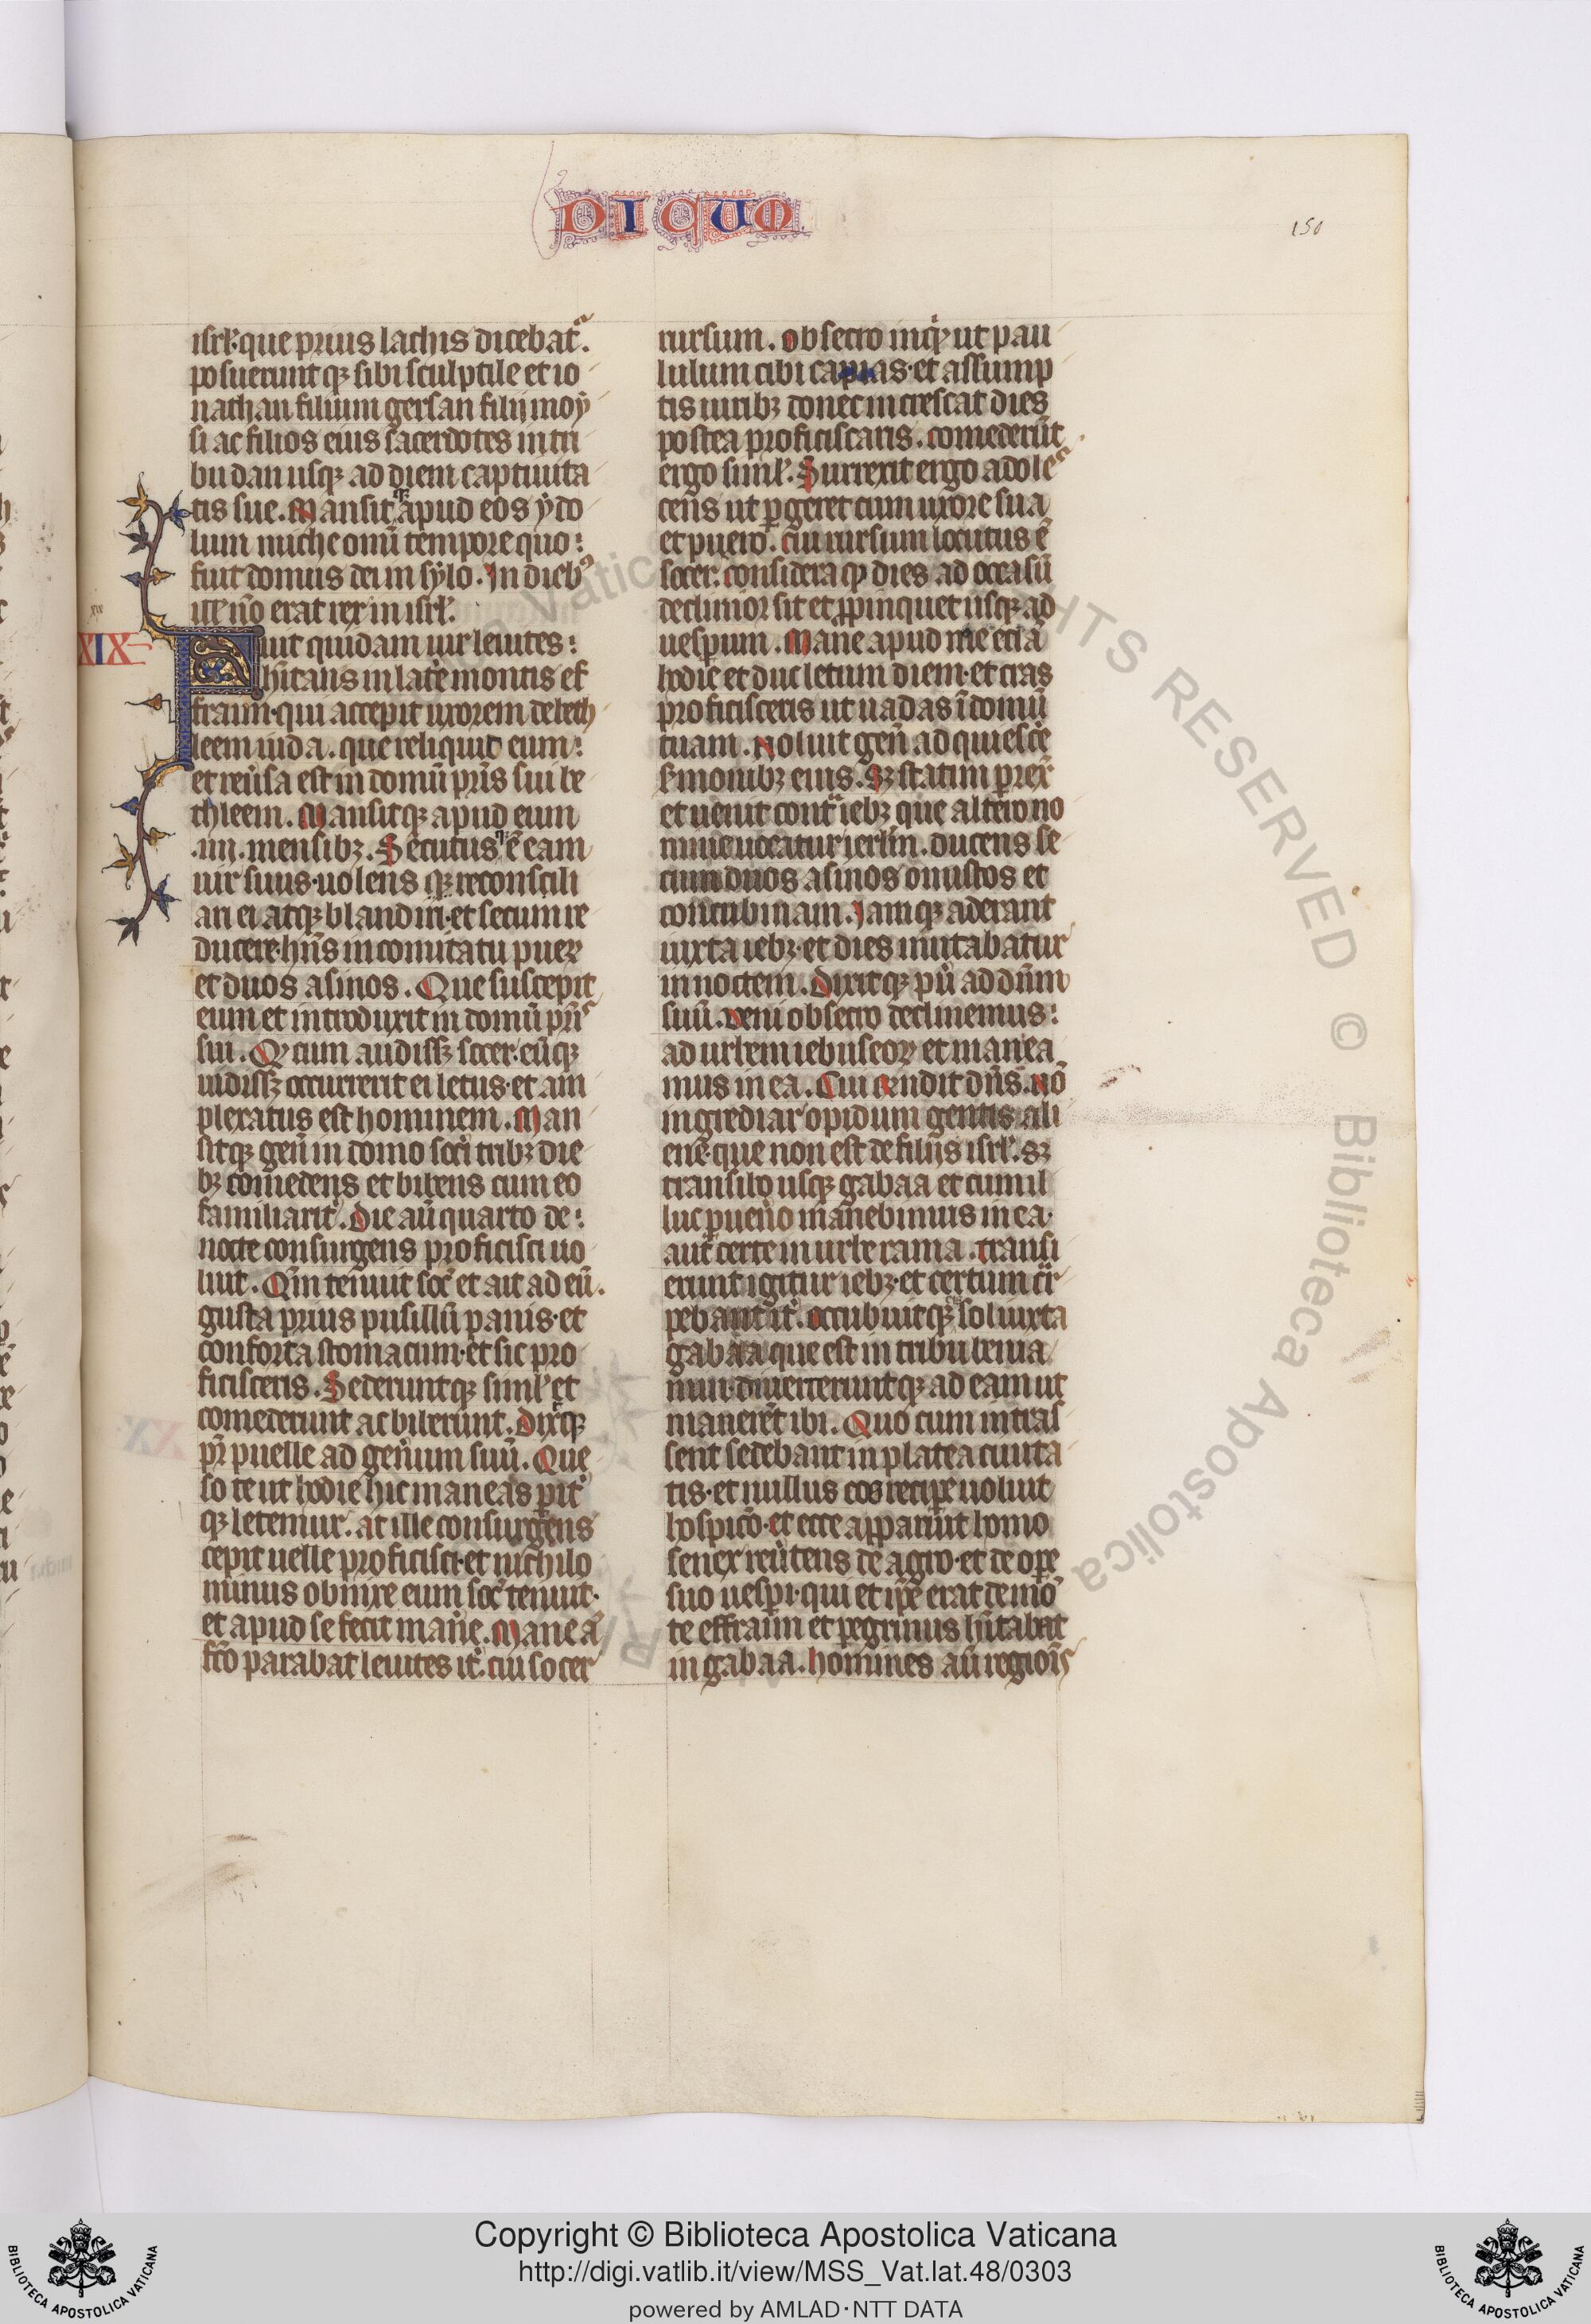 DICUM
150
isrl̄. que prius lachis dicebatᷣ.
posueruntqꝫ sibi sculptile et io
nathan filium gersan filii moy
si ac filios eius sacerdotes in tri
bu dan usqꝫ ad diem captiuita
tis sue. Mansitqꝫ apud eos ydo
lum miche omī tempore quo:
fuit domus dei in sylo. In diebꝰ
ill' nō erat rex in isrl̄.
xix
XIX
Fuit quidam uir leuites:
hītans in latẽ montis ef
fraim. qui accepit uxorem de beth
leem iuda. que reliquit eum:
et reũsa est in domū prīs sui be
thleem. Mansitqꝫ apud eum
.iiij. mensibꝫ. Secutusqꝫ ē eam
uir suus. uolens qꝫ reconsili
ari ei atqꝫ blandiri. et secum re
ducere. hn̄s in comitatu puerꝝ
et duos asinos. Que suscepit
eum et introduxit in domū prīs
sui. Qꝫ cum audissꝫ socer. eūqꝫ
uidissꝫ occurrerit ei letus. et am
plexatus est hominem. Man
sitqꝫ gen̄ in domo socẽi tribꝫ die
bꝫ comedens et bibens cum eo
familiaritᷣ. Die aū quarto de:
nocte consurgens proficisci uo
luit. Quē tenuit socᷣ et ait ad eū.
gusta prius pusillū panis. et
conforta stomacum. et sic pro
ficisceris. Sederuntqꝫ siml̄ et
comederunt ac biberunt. Dixᵗqꝫ
pr̄ puelle ad gen̄um suū. Que
so te ut hodie hic maneas pitᷣ
qꝫ letemur. at ille consurgens
cepit uelle proficisci. et nichilo
minus obnixe eum socᷣ tenuit.
et apud se fecit man̄e. Mane aᷣ
fc̄o parabat leuites itᷣ. cui socer
rursum. Obsecro inq̇t ut pau
lulum cibi capias. et assump
tis uiribꝫ donec increscat dies
postea proficiscaris. comederūt
ergo siml̄. Surrexit ergo adoles
cens ut ꝑgeret cum uxore sua
et puero. cui rursum locutus ē
socer. considera qꝫ dies ad occasū
decliuior sit et ꝓpinquet usqꝫ ad
uesꝑum. Mane apud me etiā
hodie et duc letum diem. et cras
proficisceris ut uadas ī domū
tuam. Noluit gen̄ adquiescẽ
s̄monibꝫ eius. Sꝫ statim ꝑrexᵗ
et uenit contᵃ iebꝫ que altero no
mine uocatur ierlm̄. ducens se
cum duos asinos onustos et
concubinam. Iamqꝫ aderant
iuxta iebꝫ. et dies mutabatur
in noctem. Dixitqꝫ pũ ad dn̄m
suū. Veni obsecro declinemus:
ad urbem iebuseoꝝ et manea
mus in ea. Cui rn̄dit dn̄s. Nō
ingrediar opidum gentis ali
ene. que non est de filiis isrl̄. sꝫ
transibo usqꝫ gabaa et cum il
luc ꝑuen̄o manebimus in ea.
aut certe in urbe rama. transi
erunt igitur iebꝫ. et ceptum car
pebant itᷣ. occubuitqꝫ eis sol iuxta
gabaa que est in tribu benia
min. diuerteruntqꝫ ad eam ut
manerēt ibi. Quo cum intras
sent sedebant in platea ciuita
tis. et nullus eos reciꝑe uoluit
hospicō. et ecce apparuit homo
senex reũtens de agro. et de oꝑe
suo uesꝑi. qui et ip̄e erat de mō
te effraim et ꝑegrinus hītabat
in gabaa. homines aū regiois
Copyright © Biblioteca Apostolica Vaticana
http://digi.vatlib.it/view/MSS_Vat.lat.48/0303
powered by AMLAD·NTT DATA
BIBLIOTECA APOSTOLICA VATICANA
BIBLIOTECA APOSTOLICA VATICANA